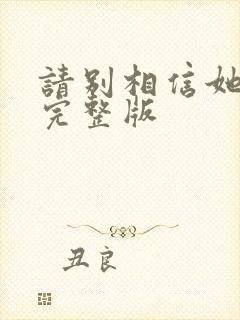 請别相信她
完整版
丑良